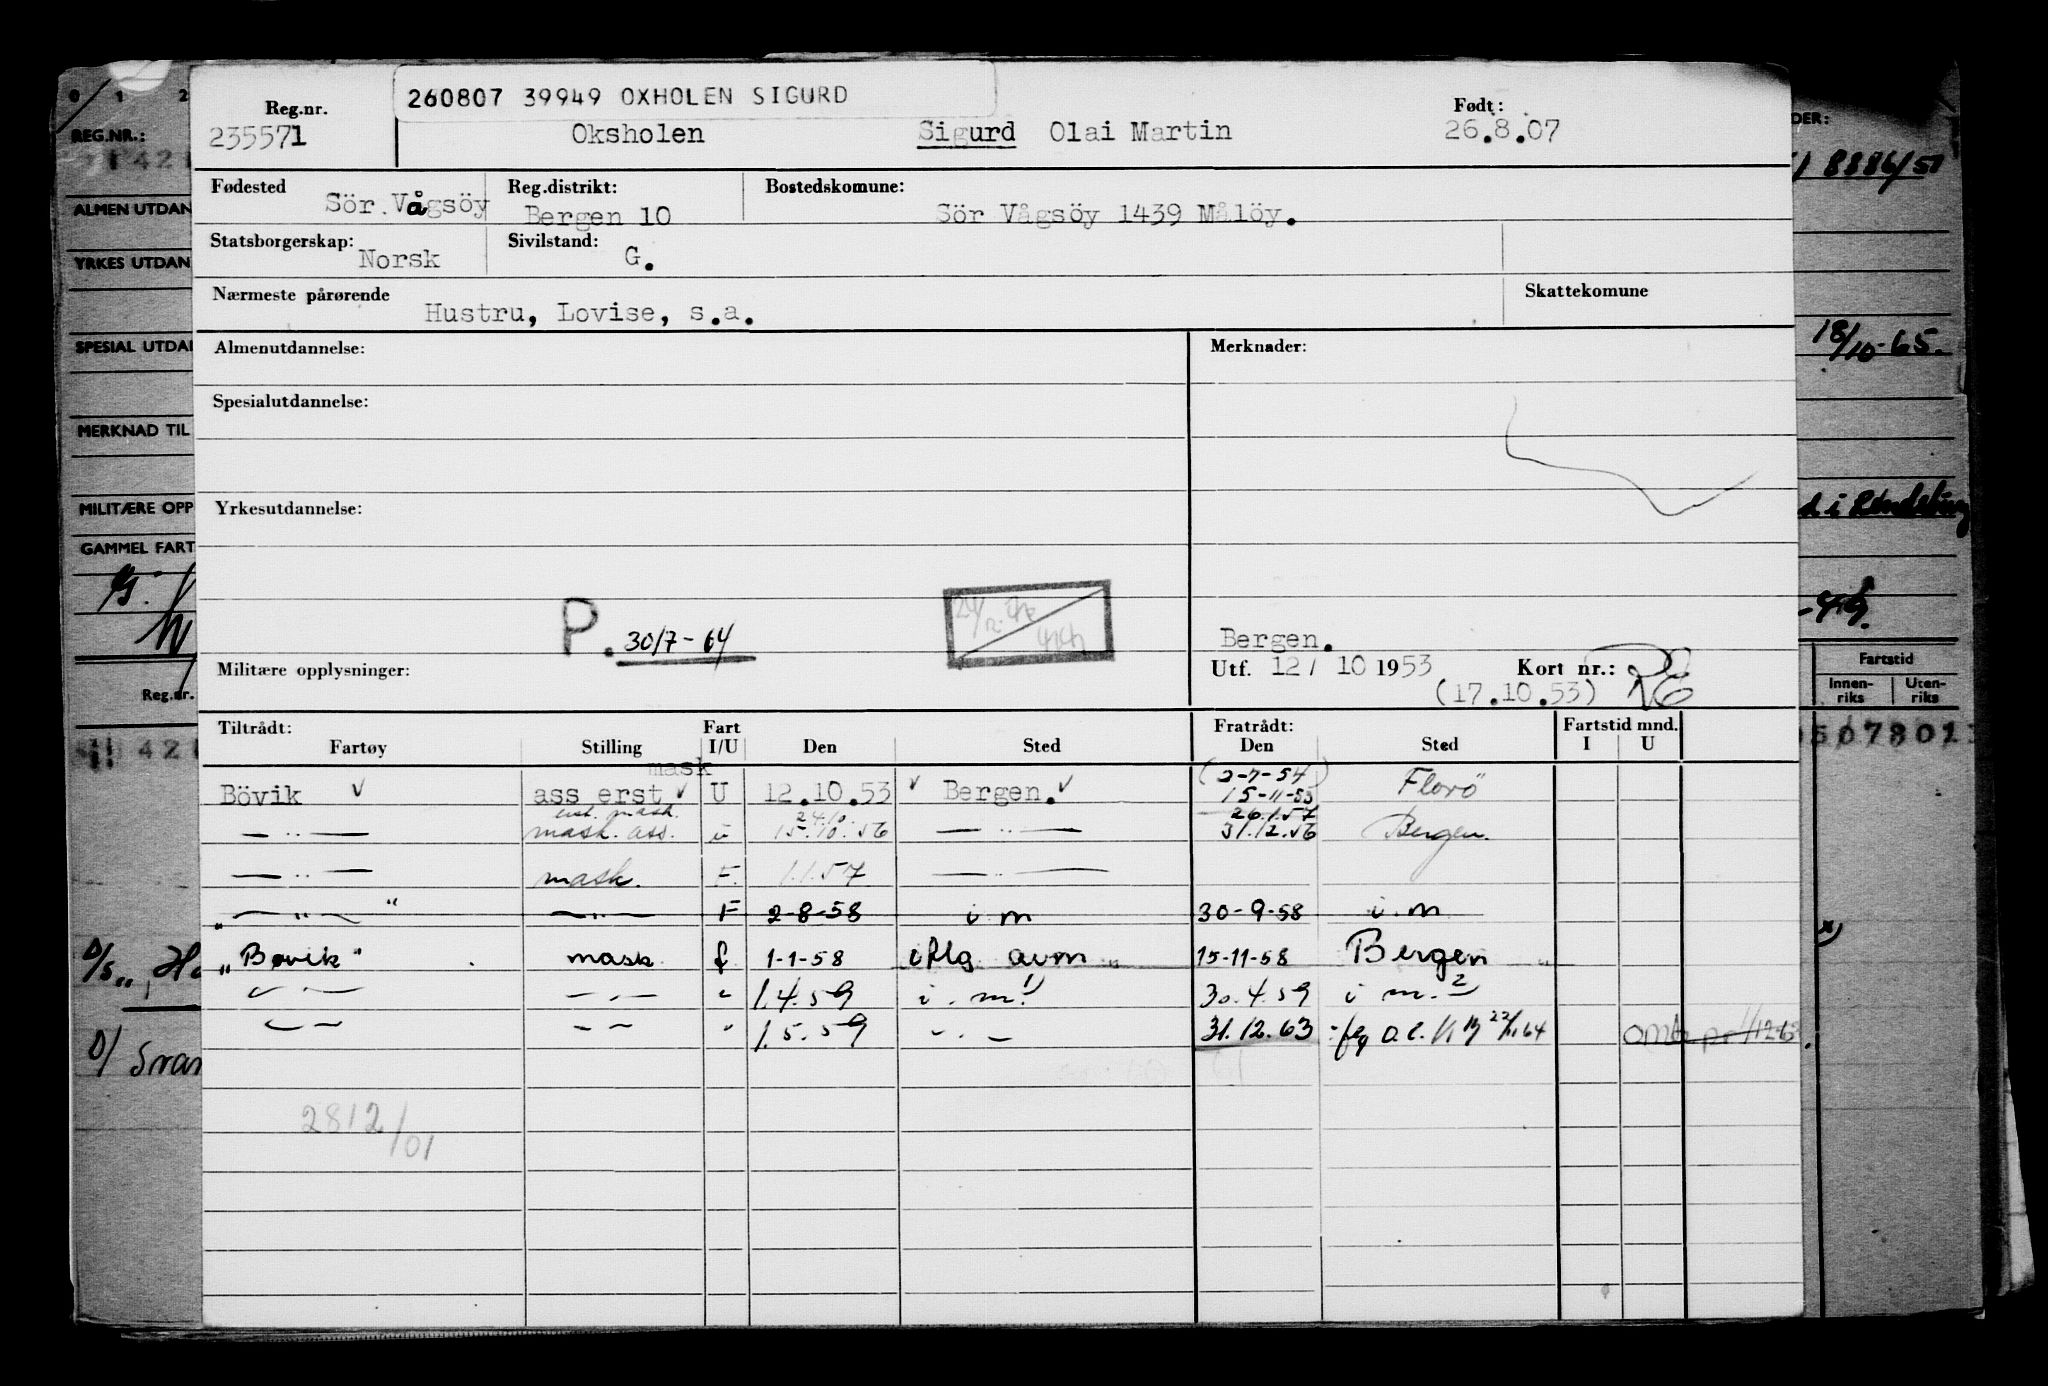 260807 39949 OXHOLEN SIGURD
Reg.nr. Født:
235571 Oksholen Sigurd Olai Martin 26.8.07
Fødested Sör Vågsöy Reg.distrikt: Bergen 10 Bostedskomune: Sör Vågsöy 1439 Målöy.
Statsborgerskap: Norsk Sivilstand: G.
Nærmeste pårørende Hustru, Lovise, s.a. Skattekomune
Almenutdannelse: Merknader:
Spesialutdannelse:
Yrkesutdannelse:
P. 30/7-64
Bergen.
Militære opplysninger: Utf. 12/10 1953 Kort nr.:
(17.10.53)
Tiltrådt: Fart Fratrådt: Fartstid mnd.
Fartøy Stilling I/U Den Sted Den Sted I U
mask (2-7-54)
Bövik ass erst U 12.10.53 Bergen. 15-11-53 Florö
24.10. 26.1.57
— .. — mask. ass. u 15.10.56 — .. — 31.12.56 Bergen.
— .. — mask. F. 1.1.57 — .. —
„ — „ — " — „ — F 2-8-58 i m 30-9-58 i. m
„Bovik" mask f 1-1-58 iflg avm 15-11-58 Bergen
— . — — . — " 1.4.59 i. m. 1) 30.4.59 i m. 2)
— — — — " 1.5.59 — . — 31.12.63
2812/01
0 1 2
REG.NR.:
ALMEN UTDAN
YRKES UTDAN
SPESIAL UTDA
MERKNAD TIL
MILITÆRE OPP
GAMMEL FART
Reg.nr.
421
DER:
8886/51
18/10-65.
-49.
Fartstid
Innen-
riks
Uten-
riks
D/S
D/